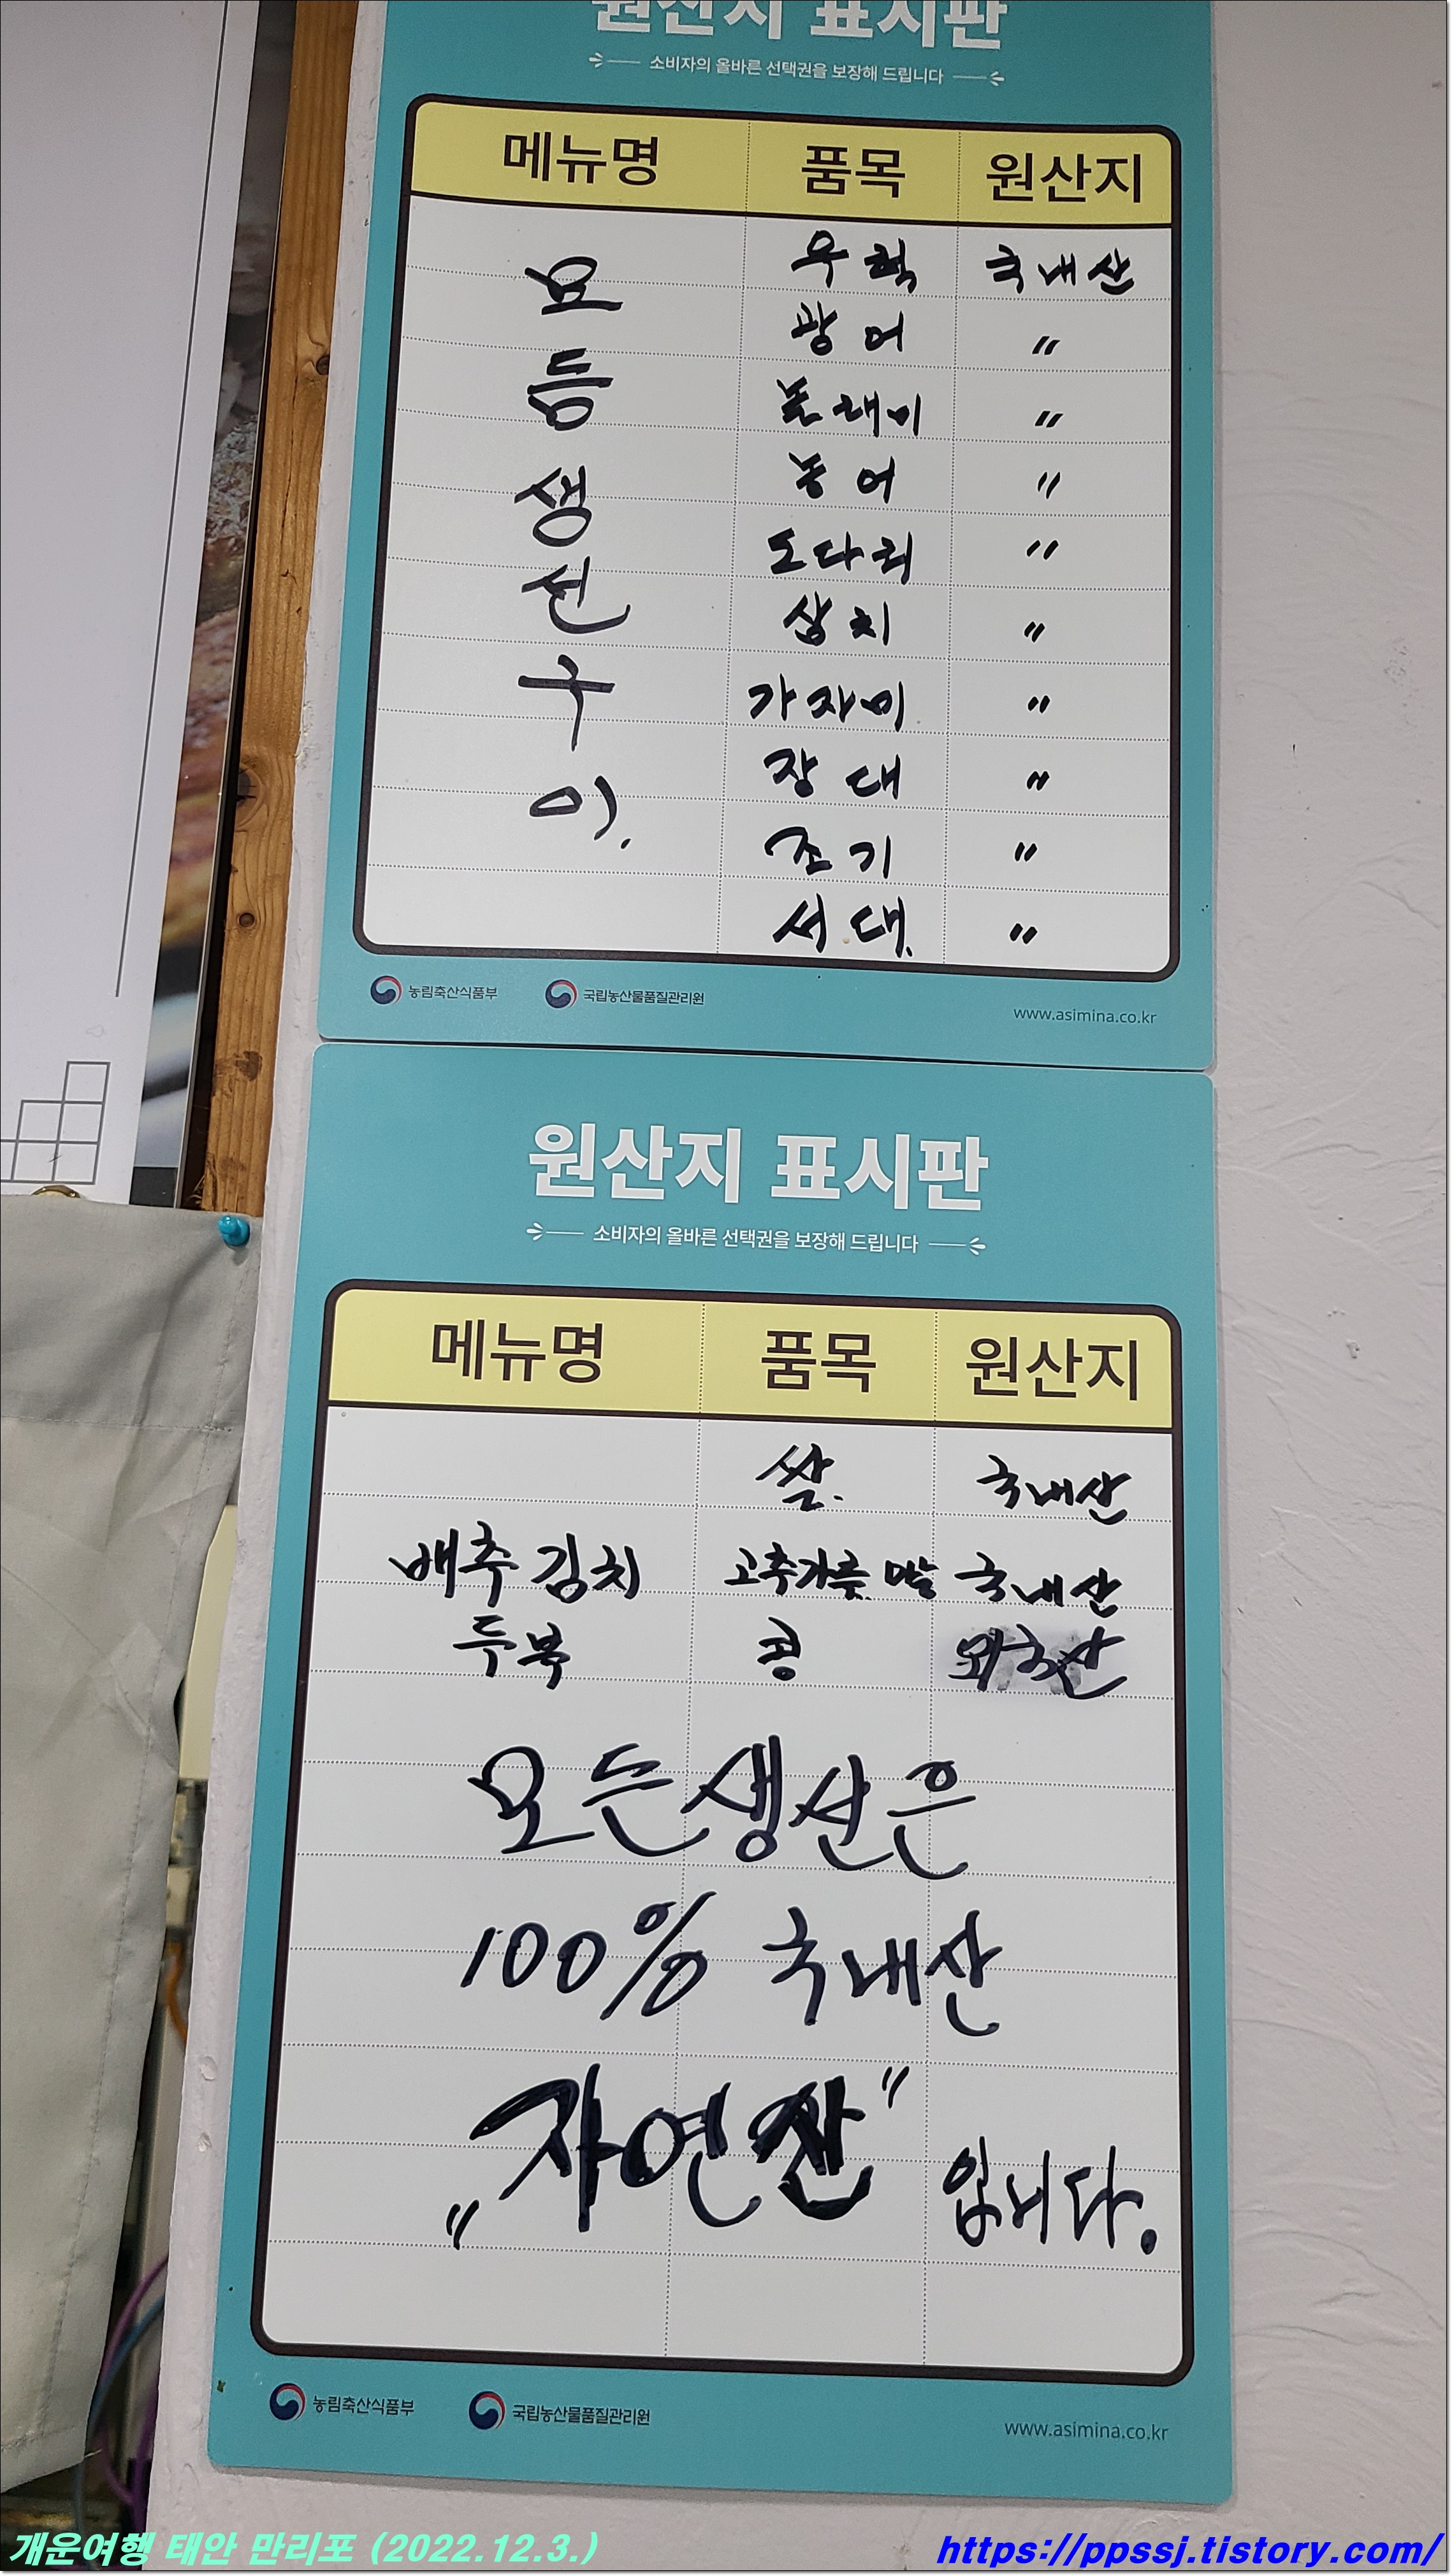 원산지 표시판
소비자의 올바른 선택권을 보장해 드립니다
메뉴명 품목 원산지
모듬생선구이.
우럭 국내산
광어 〃
놀래미 〃
농어 〃
도다리 〃
삼치 〃
가자미 〃
장대 〃
조기 〃
서대. 〃
농림축산식품부 국립농산물품질관리원 www.asimina.co.kr
원산지 표시판
소비자의 올바른 선택권을 보장해 드립니다
메뉴명 품목 원산지
쌀. 국내산
배추김치 고추가루. 마늘 국내산
두부 콩 외국산
모든생선은
100% 국내산
"자연산" 입니다.
농림축산식품부 국립농산물품질관리원 www.asimina.co.kr
개운여행 태안 만리포 (2022.12.3.) https://ppssj.tistory.com/